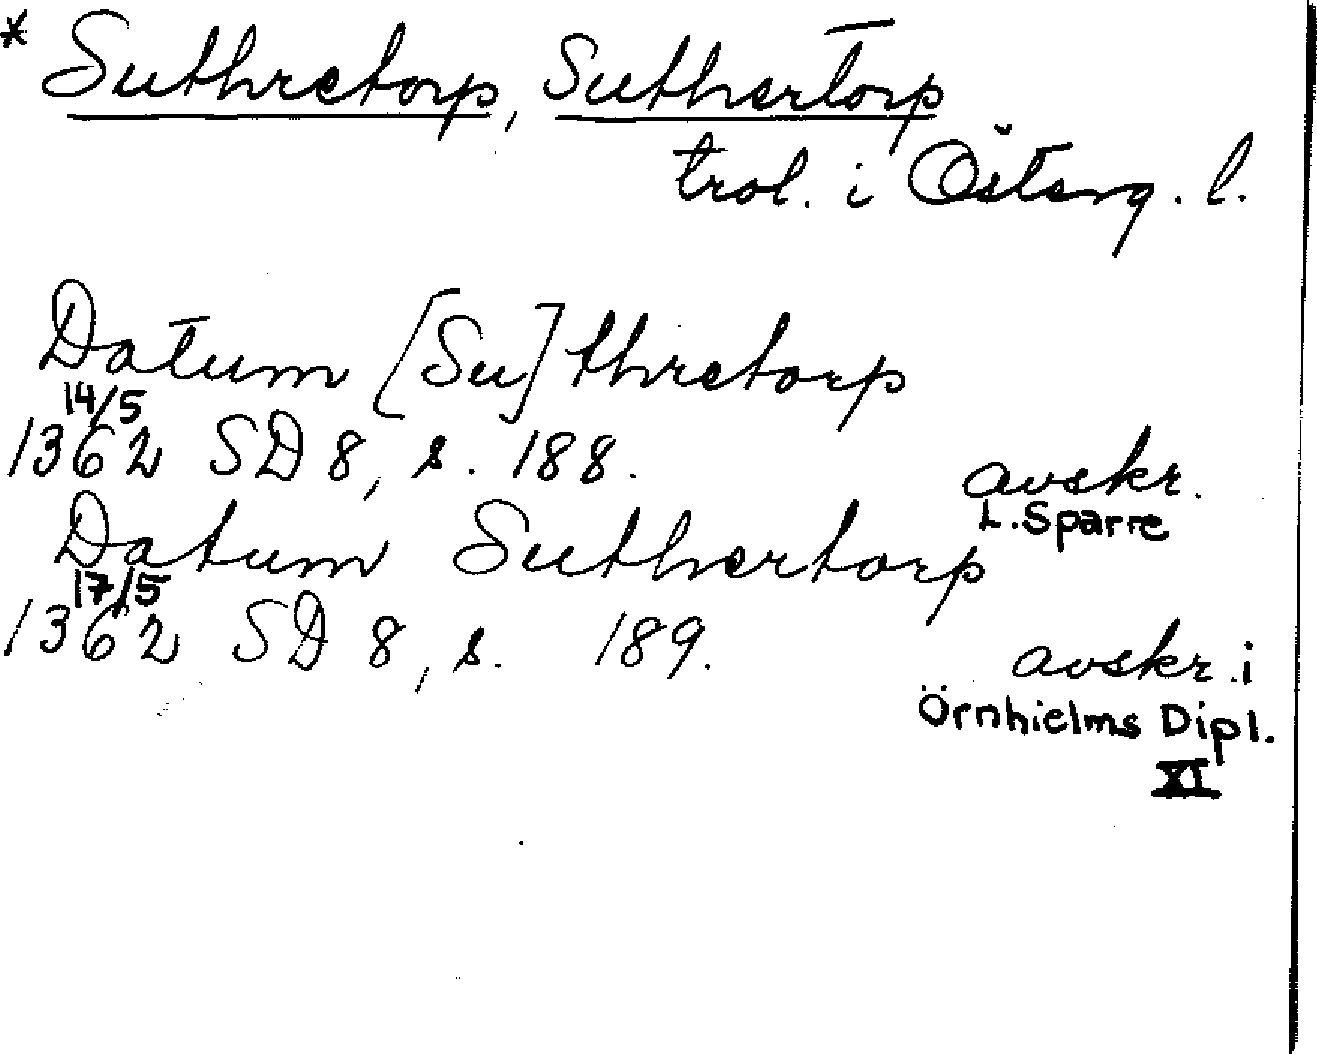 * Suthretorp, Suthertorp
trol. i Österg. l.
Datum [Su]thretorp
14/5
1362 SD 8, s. 188. avskr.
L. Sparre
Datum Suthertorp
17/5
1362 SD 8, s. 189. avskr. i
Örnhielms Dipl.
XI